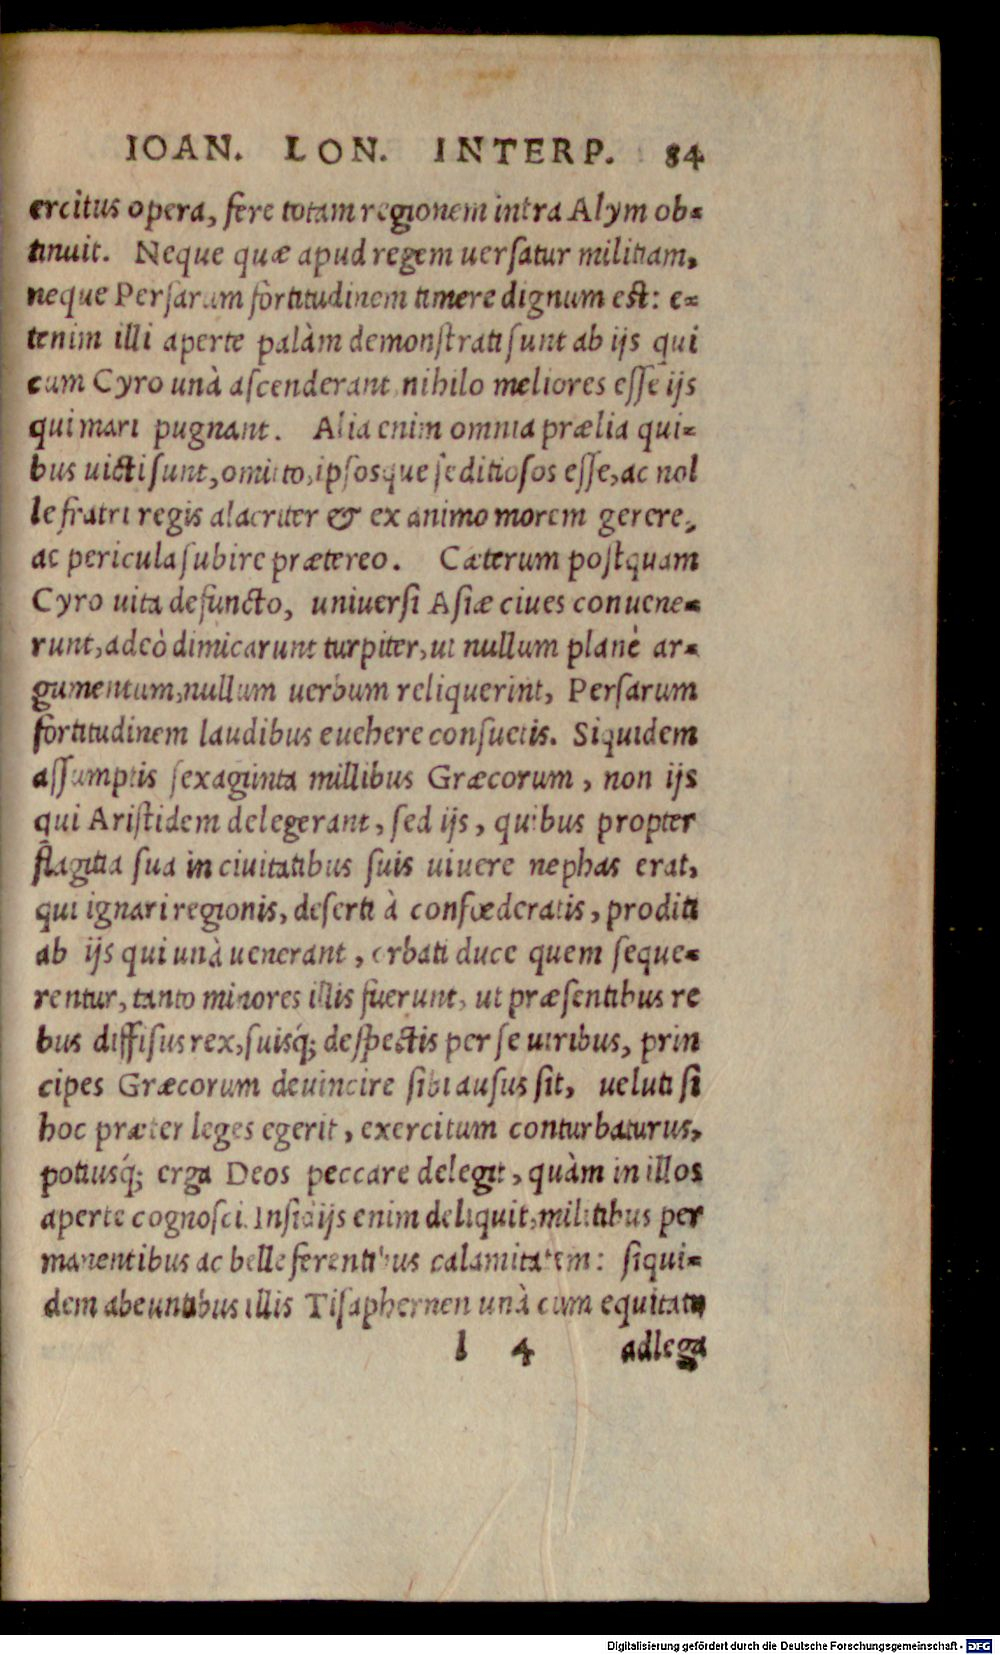 IOAN. LON. INTERP. 84
ercitus opera, fere totam regionem intra Alym ob-
tinuit. Neque quæ apud regem uersatur militiam,
neque Persarum fortitudinem timere dignum est: e-
tenim illi aperte palàm demonstrati sunt ab ijs qui
cum Cyro unà ascenderant nihilo meliores esse ijs
qui mari pugnant. Alia enim omnia prælia qui-
bus uicti sunt, omitto, ipsosque seditiosos esse, ac nol
le fratri regis alacriter & ex animo morem gerere,
ac pericula subire prætereo. Cæterum postquam
Cyro uita defuncto, uniuersi Asiæ ciues conuene-
runt, adeò dimicarunt turpiter, ut nullum planè ar-
gumentum, nullum uerbum reliquerint, Persarum
fortitudinem laudibus euehere consuetis. Siquidem
assumptis sexaginta millibus Græcorum, non ijs
qui Aristidem delegerant, sed ijs, quibus propter
flagitia sua in ciuitatibus suis uiuere nephas erat,
qui ignari regionis, deserti à confœderatis, proditi
ab ijs qui unà uenerant, orbati duce quem seque-
rentur, tanto minores illis fuerunt, ut præsentibus re
bus diffisus rex, suisq́; despectis per se uiribus, prin
cipes Græcorum deuincire sibi ausus sit, ueluti si
hoc præter leges egerit, exercitum conturbaturus,
potiusq́; erga Deos peccare delegit, quàm in illos
aperte cognosci. Insidijs enim deliquit, militibus per
manentibus ac belle ferentibus calamitatem: siqui-
dem abeuntibus illis Tisaphernen unà cum equitatu
l 4 adlega
Digitalisierung gefördert durch die Deutsche Forschungsgemeinschaft - DFG